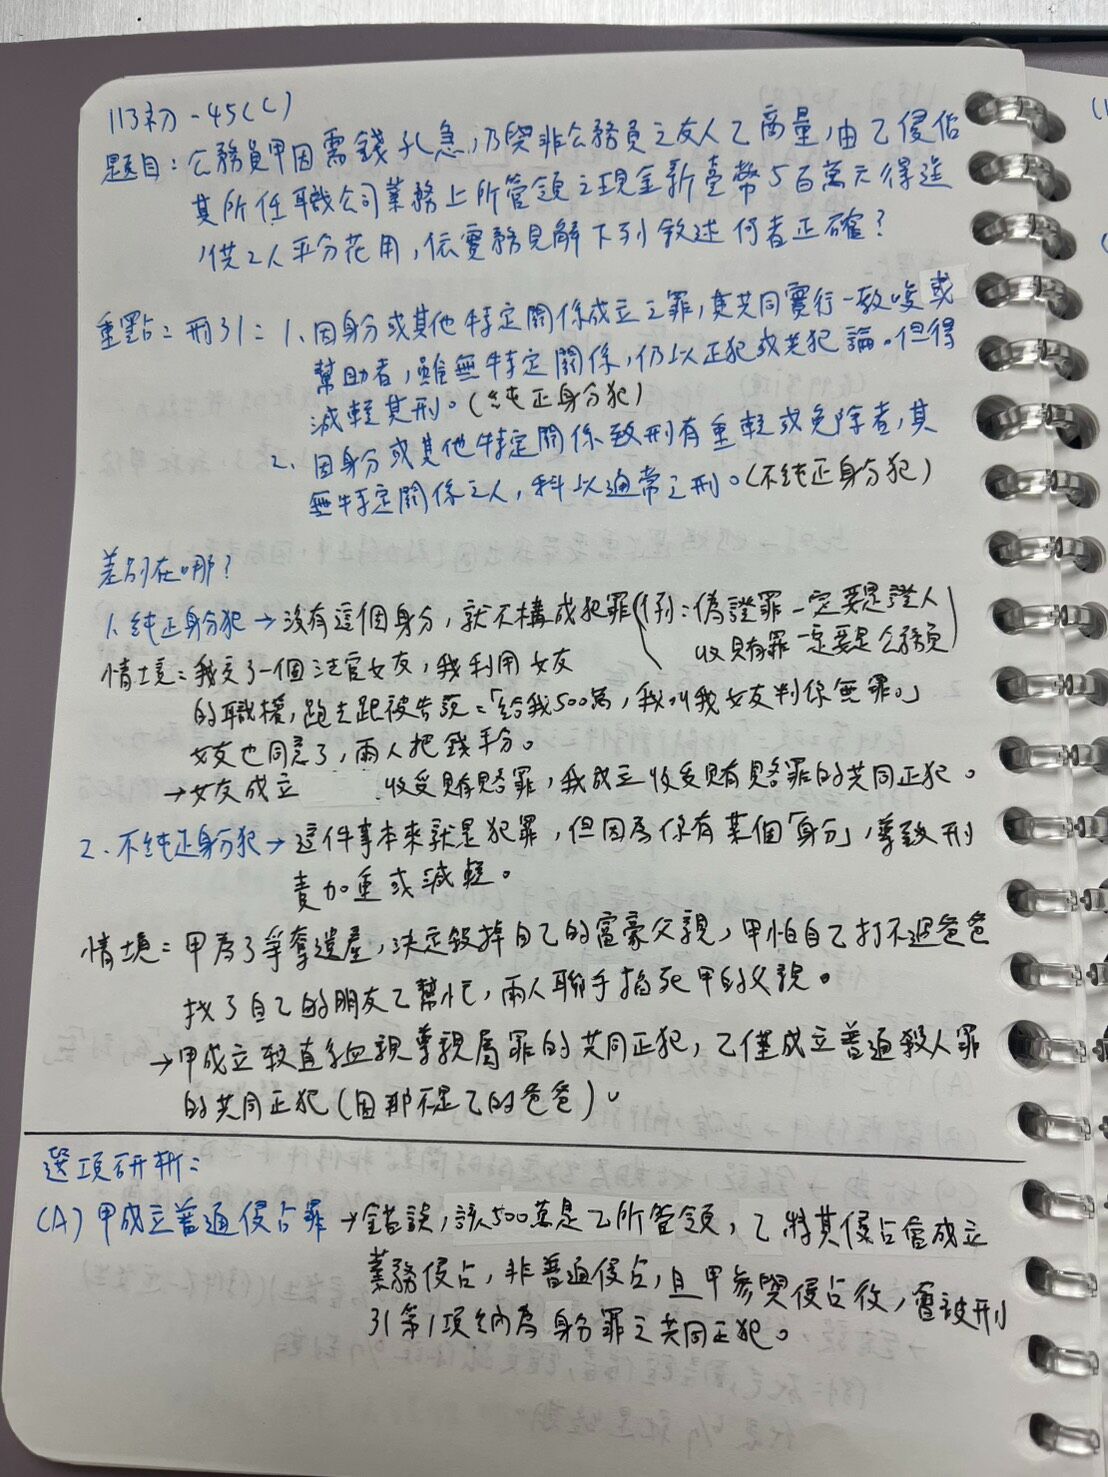 113初-45(C)
題目：公務員甲因需錢孔急，乃與非公務員之友人乙商量，由乙侵佔
其所任職公司業務上所管領之現金新臺幣5百萬元得逞
，供2人平分花用，依實務見解下列敘述何者正確？
重點：刑31：1、因身分或其他特定關係成立之罪，其共同實行、教唆或
幫助者，雖無特定關係，仍以正犯或共犯論。但得
減輕其刑。(純正身分犯)
2、因身分或其他特定關係致刑有重輕或免除者，其
無特定關係之人，科以通常之刑。(不純正身分犯)
差別在哪？
1、純正身分犯→沒有這個身分，就不構成犯罪(例：偽證罪一定要是證人
收賄罪一定要是公務員)
情境：我交了一個法官女友，我利用女友
的職權，跑去跟被告說：「給我500萬，我叫我女友判你無罪。」
女友也同意了，兩人把錢平分。
→女友成立 收受賄賂罪，我成立收受賄賂罪的共同正犯。
2、不純正身分犯→這件事本來就是犯罪，但因為你有某個「身分」，導致刑
責加重或減輕。
情境：甲為了爭奪遺產，決定殺掉自己的富豪父親，甲怕自己打不過爸爸
找了自己的朋友乙幫忙，兩人聯手掐死甲的父親。
→甲成立殺直系血親尊親屬罪的共同正犯，乙僅成立普通殺人罪
的共同正犯(因那不是乙的爸爸)。
選項研析：
(A)甲成立普通侵占罪→錯誤，該500萬是乙所管領，乙將其侵占會成立
業務侵占，非普通侵占，且甲參與侵占後，會被刑
31第1項納為身分罪之共同正犯。